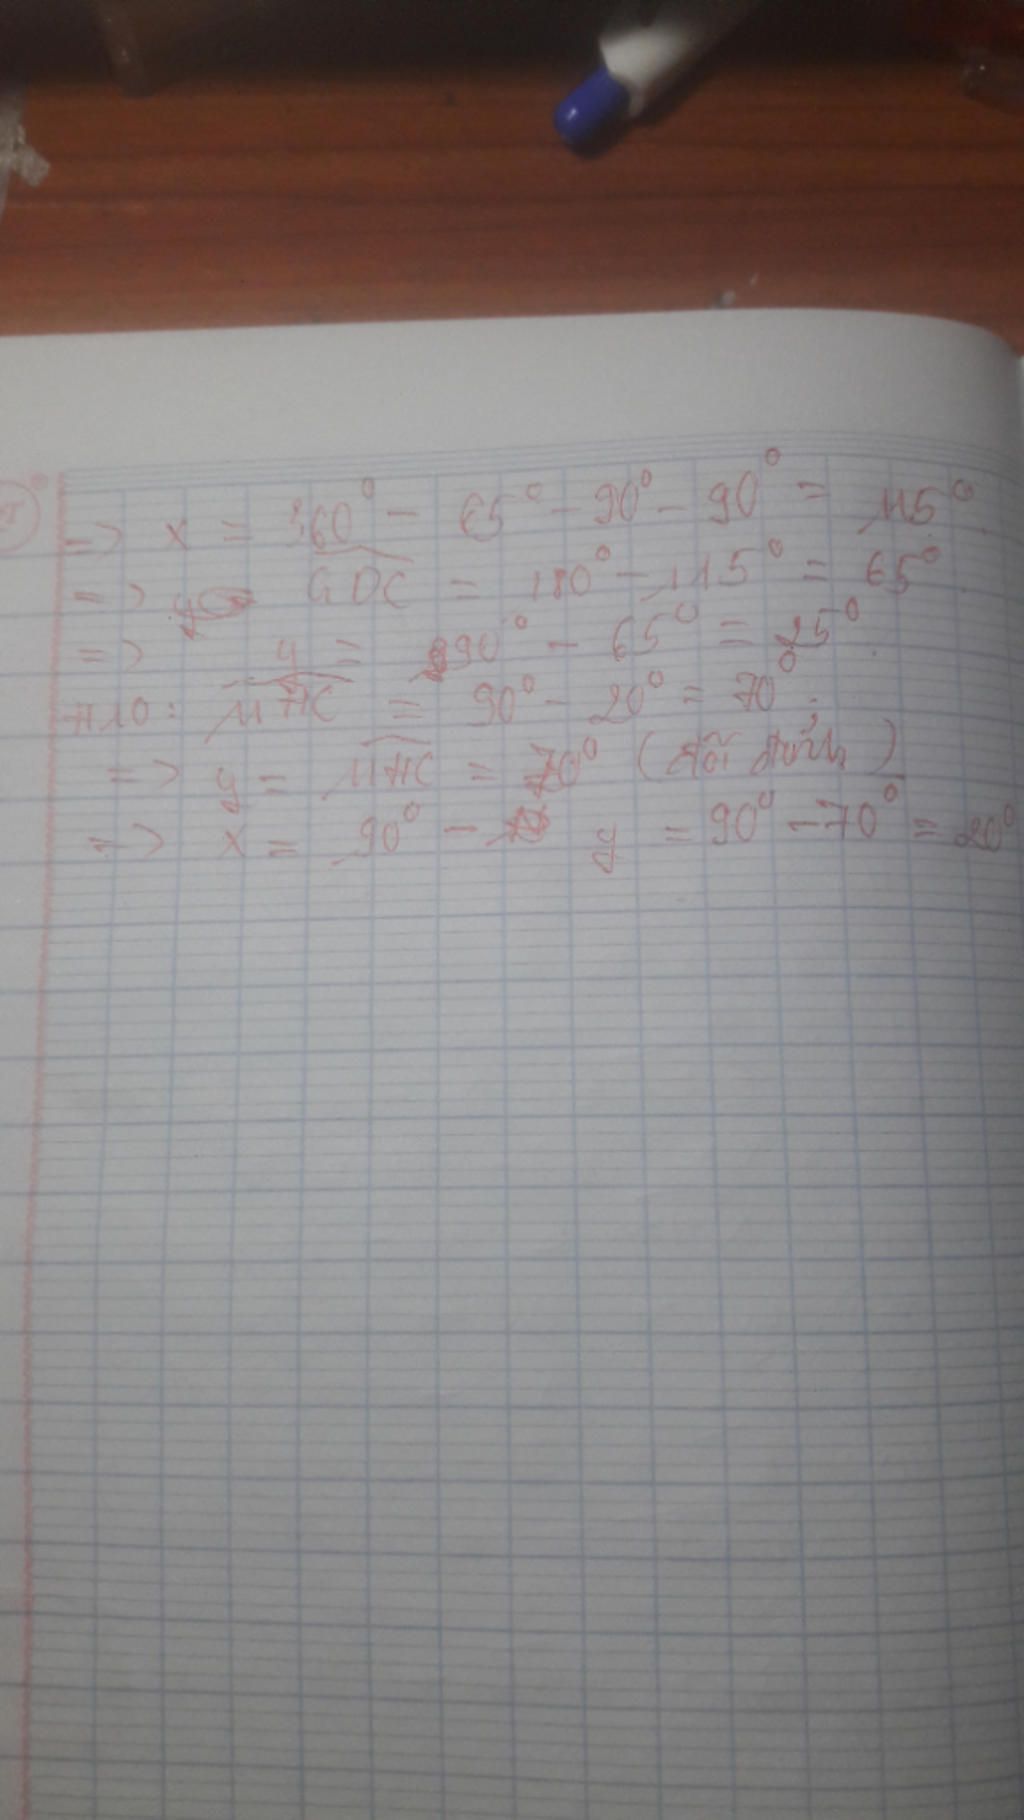 => x = 360° - 65° - 90° - 90° = 115°
=> GDC = 180° - 115° = 65°
=> y = 90° - 65° = 25°
H10: MHC = 90° - 20° = 70°
=> y = MHC = 70° (đối đỉnh)
=> x = 90° - y = 90° - 70° = 20°